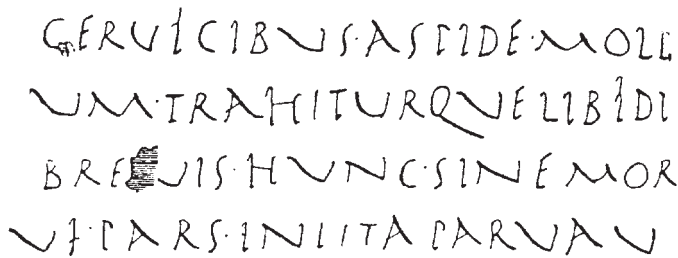 CERVICIBVS·ASPIDE·MOLL
VM·TRAHITVRQVE LIBIDI
BREVIS·HVNC·SINE MOR
VI·PARS·INLITA PARVA V